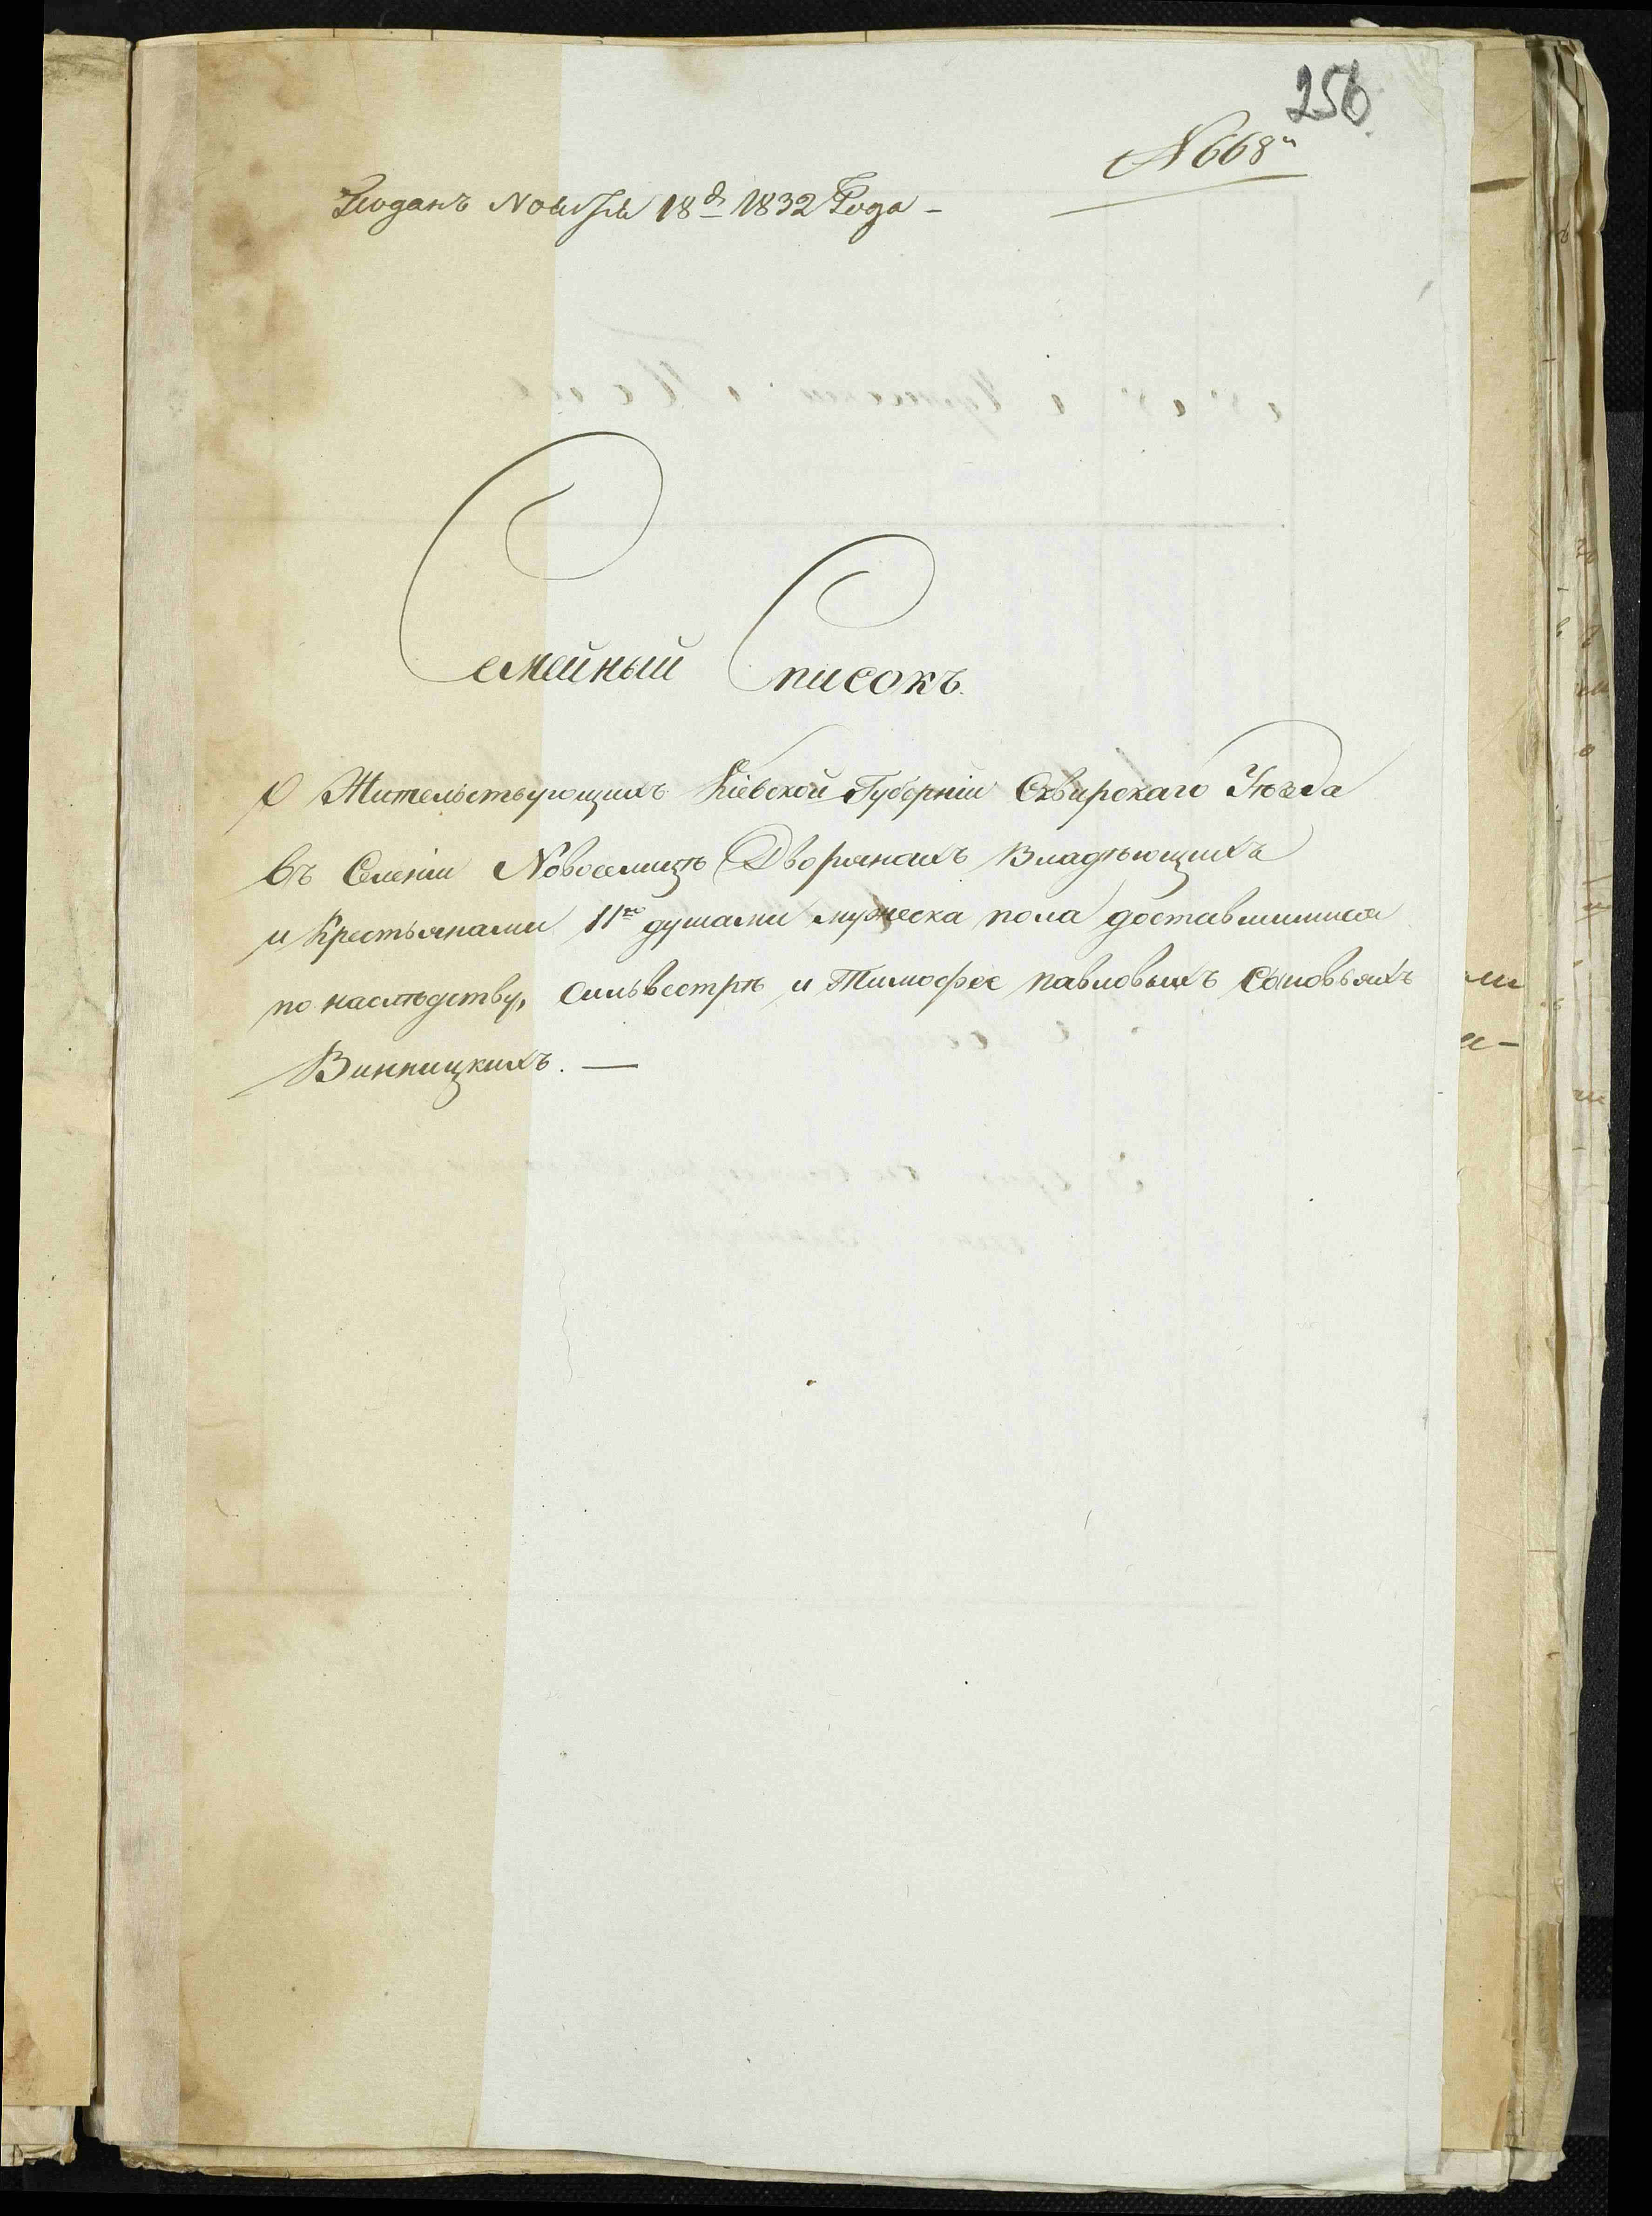 256
N 668й
Поданъ Ноября 18д 1832 Года -
Семейный Списокъ.
О Жительствующихъ Кіевской Губерніи Сквирскаго Уѣзда
въ Селеніи Новоселицѣ Дворянахъ Владѣющихъ
и Крестьянами 11ю душами мужеска пола доставшимися
по наслѣдству, Сильвестрѣ и Тимофее павловыхъ Сыновьяхъ
Винницкихъ. —